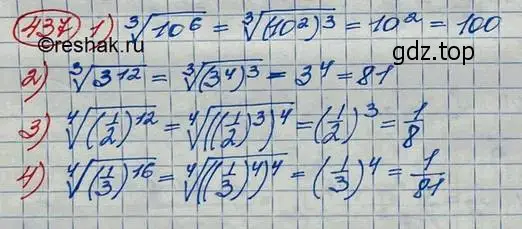 437 1) ∛(10⁶) = ∛((10²)³) = 10² = 100
©Reshak.ru
gdz.top
2) ∛(3¹²) = ∛((3⁴)³) = 3⁴ = 81
3) ∜((1/2)¹²) = ∜(((1/2)³)⁴) = (1/2)³ = 1/8
4) ∜((1/3)¹⁶) = ∜(((1/3)⁴)⁴) = (1/3)⁴ = 1/81